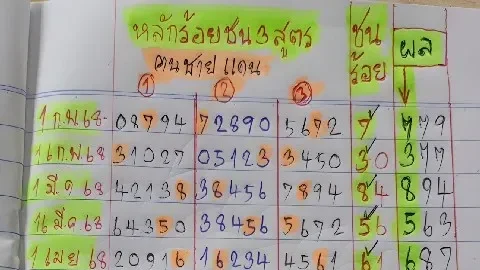 หลักร้อยชน3สูตร ชน ผล
คนชายแดน ร้อย
① ② ③
1 ก.พ 68- 08794 72890 5672 7 779
16 ก.พ 68 31027 05123 3450 30 377
1 มี.ค 68 42138 38456 7894 84 894
16 มี.ค 68 64350 38456 5672 56 563
1 เมย 68 20916 16234 4561 61 687